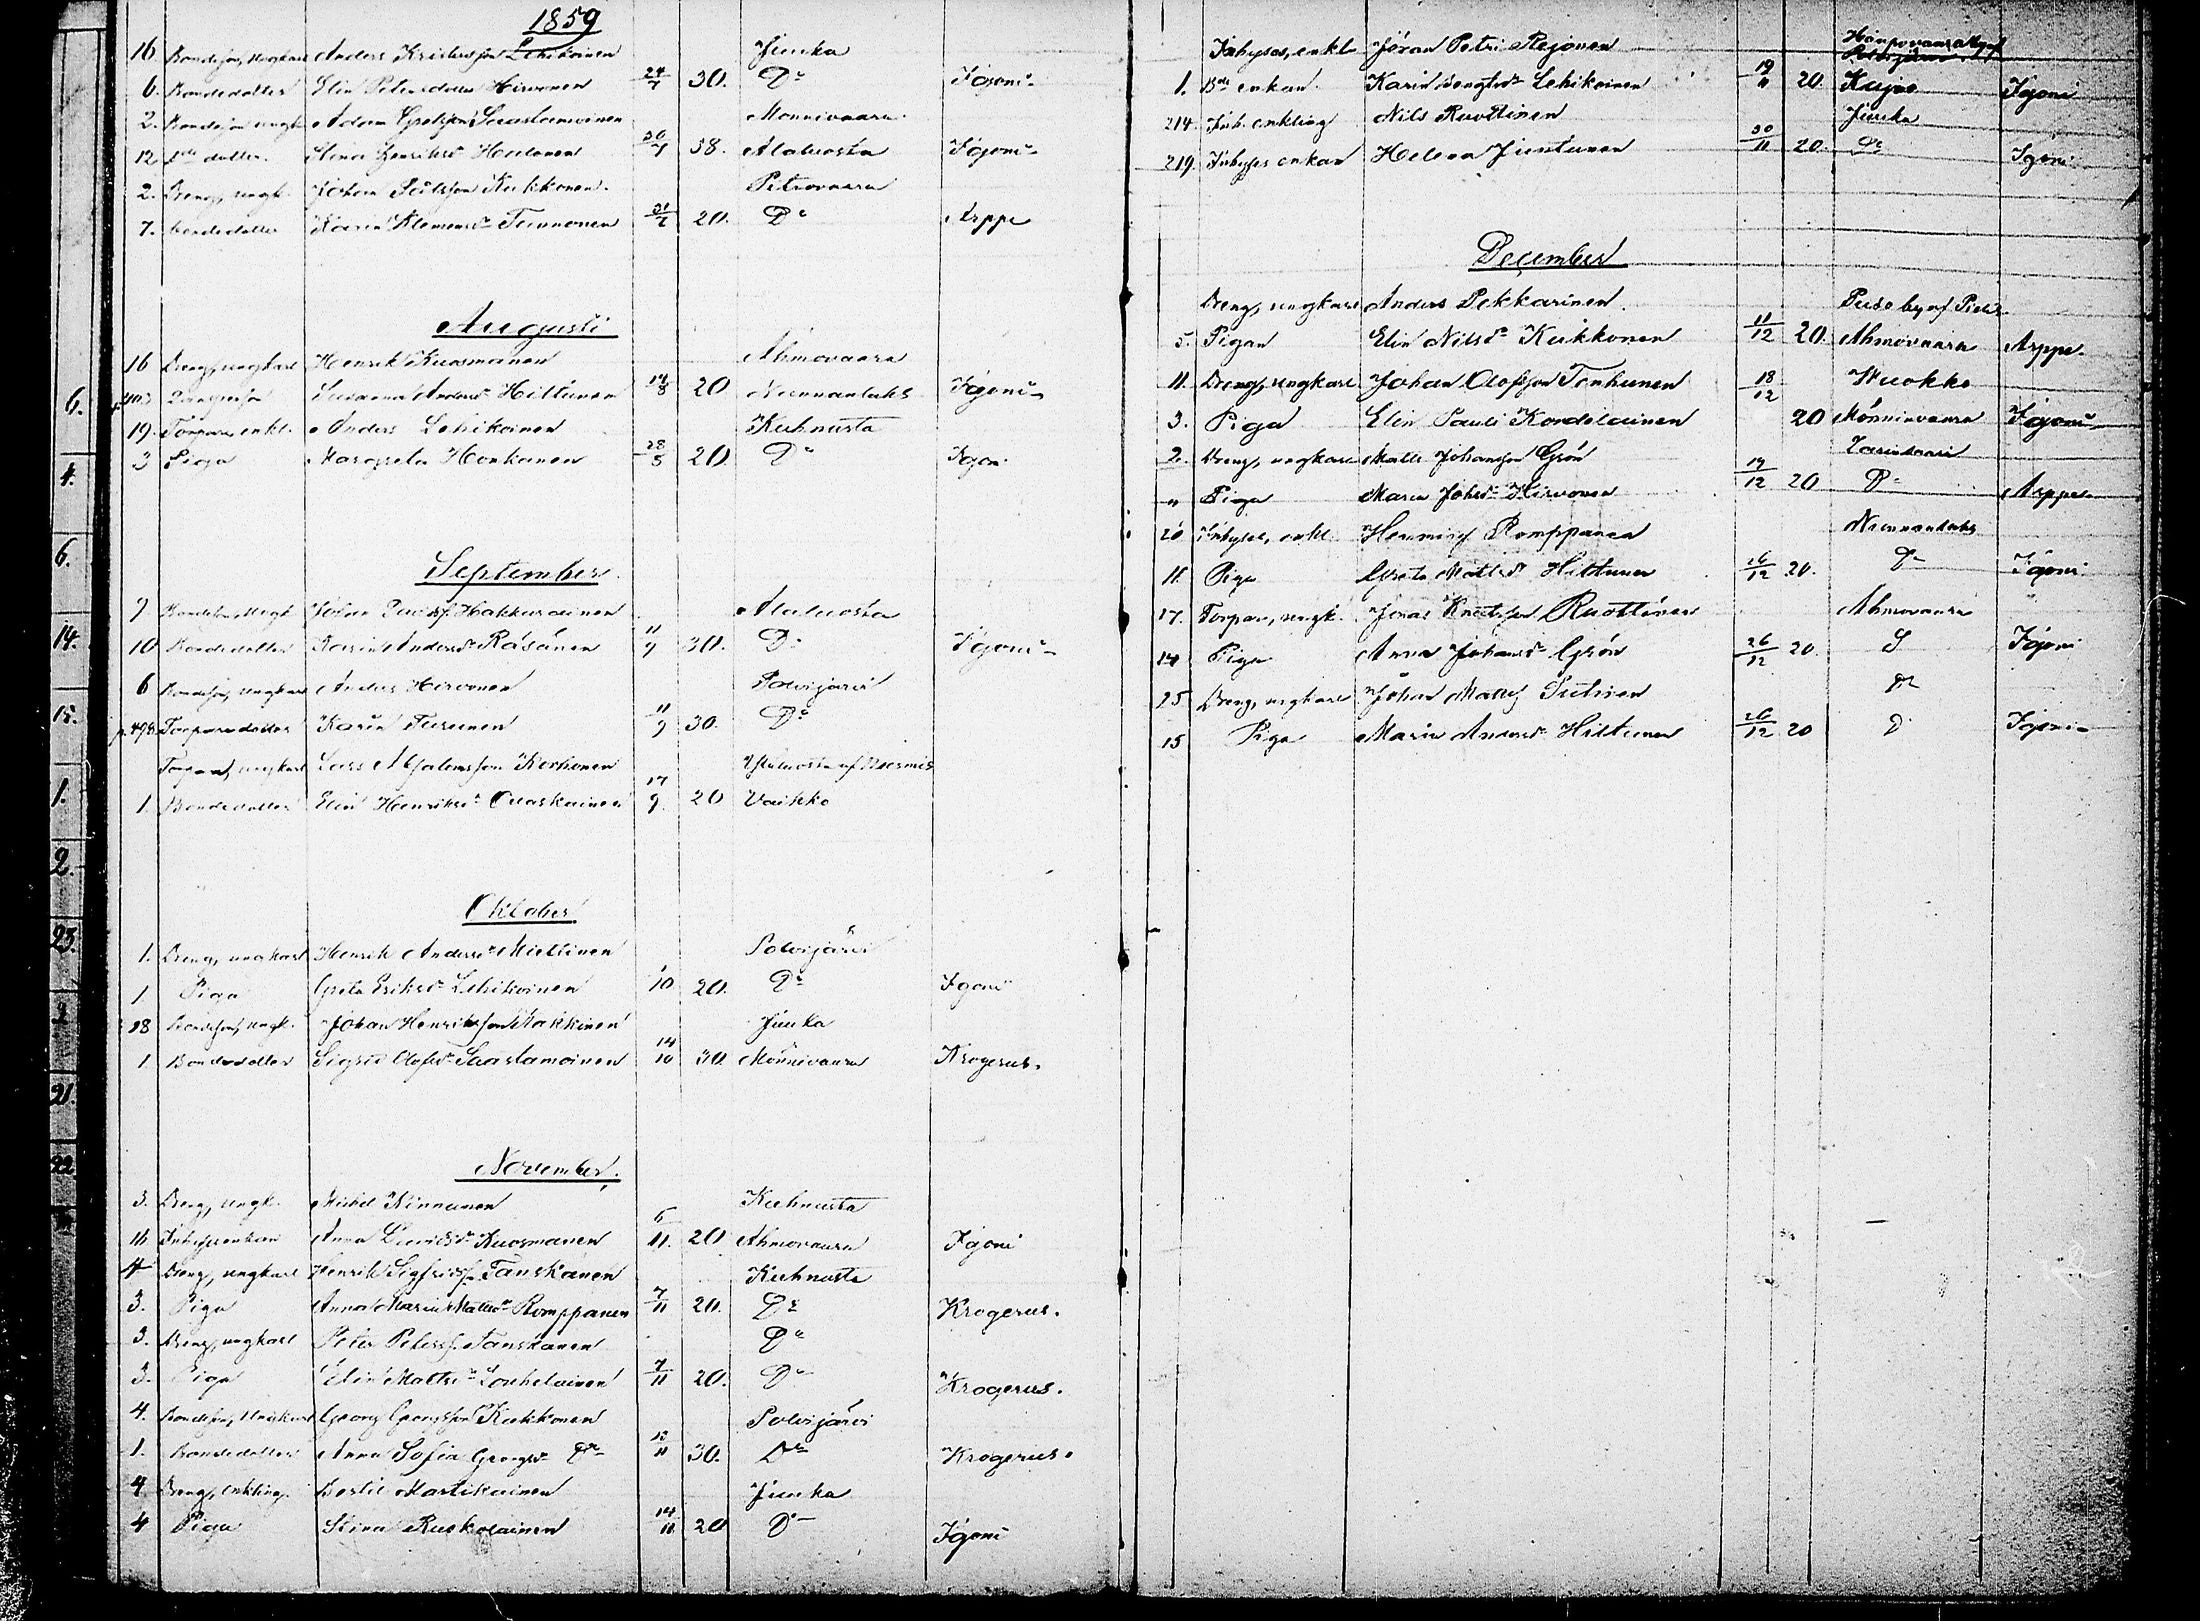 1859
16 Bondeson, ungkarl Anders Kristersson Lehikoinen Juuka
6. Bondedotter Elin Petersdotter Hirvonen 24/7 30. Do Igoni
2. Adam Saastamoinen Monnivaara
12 dotter Stina Henriksdr 30/7 38. Alaluosta Igoni
2. Dreng, ungk. Johan Kukkonen Petrovaara
7. bondedotter Karin Klemensdr Turunonen 31/7 20. Do Arppe
Augusti
16 Dreng, ungkarl Henrik Kuosmanen Ahmovaara
Susanna Andersdr Hiltunen 14/8 20 Nunnanlaks Igoni
19. Torpare, enkl. Anders Lehikoinen Kuhnusta
3 Piga Margreta Honkanen 28/8 20. Do Igoni
September
9 Johan Hakkarainen Alaluosta
10 Bondedotter Karin Andersdr Räsänen 11/9 30. Do Igoni
6 Bondeson, ungkarl Anders Hirvonen Polvijärvi
p. 498 Torparedotter Karin Turunen 11/9 30. Do
ungkarl Lars Korhonen af Nurmis
1 Bondedotter Elin Henriksdr Ovaskainen 17/9 20 Vaikko
Oktober
1. Dreng, ungkarl Henrik Anderss. Miettinen Polvijärvi
1 Piga Greta Eriksdr Lehikoinen 10 20. Do Igoni
28 Bondeson, ungk. Johan Henriksson Juuka
1 Bondedotter Sigrid Olofsdr Saastamoinen 14/10 30. Monnivaara Krogerus.
November.
3. Dreng, ungk. Michel Kinnunen Kuhnusta
16 Inhysesenkan Anna Davidsdr Kuosmanen 6/11. 20 Ahmovaara Igoni
4 Dreng, ungkarl Henrik Sigfridss. Tanskanen Kuhnusta
3. Piga Anna Maria Mattsdr Romppanen 7/11 20. Do Krogerus.
3. Dreng, ungkarl Peter Peterss. Tanskanen Do
3. Piga Elin Mattsdr Louhelainen 7/11 20. Do Krogerus.
4. Bondeson, Ungkarl Georg Georgsson Kukkonen Polvijärvi
1. Bondedotter Anna Sofia Georgsdr Do 13/11 30. Do Krogerus.
4 Dreng, enkling. Bertil Martikainen Juuka
4 Piga Stina Ruskolainen 14/11 20 Do Igoni
Inhyses, enkl. Jöran Petri Rejonen
1. Bde enkan Karin Bengtsdr Lehikoinen 19/11 20. Kajoo Igoni
214. Inh. enkling Nils Ruottinen Juuka
219. Inhyses enkan Helena Juntunen 30/11 20. Do Igoni
December
Dreng, ungkarl Anders Pekkarinen by af Pielis
5. Pigan Elin Nilsdr Kukkonen 11/12 20. Ahmovaara Arppe.
11. Dreng, ungkarl. Johan Olofsson Tenhunen 18/12 Wuokko
3. Piga Elin Pauli Kondelainen 20 Monnivaara Igoni
2. Dreng, ungkarl Matts Johansson Grön Larinsaari
" Piga Maria Johsdr Hirvonen 19/12 20 Do Arppe
20 Inhyses, enkl. Henning Romppanen Nunnanlaks
11. Piga Greta Mattsdr Hiltunen 26/12 20. Do Igoni
17. Torpare, ungk. Jonas Knutsson Ruottinen Ahmovaara
14 Piga Anna Johansdr Grön 26/12 20. D Igoni
25 Dreng, ungkarl Johan Matts. Do
15 Piga Maria Andersdr Hiltunen 26/12 20 D Igoni
6.
4.
6.
14.
15.
1.
2.
23.
21.
22